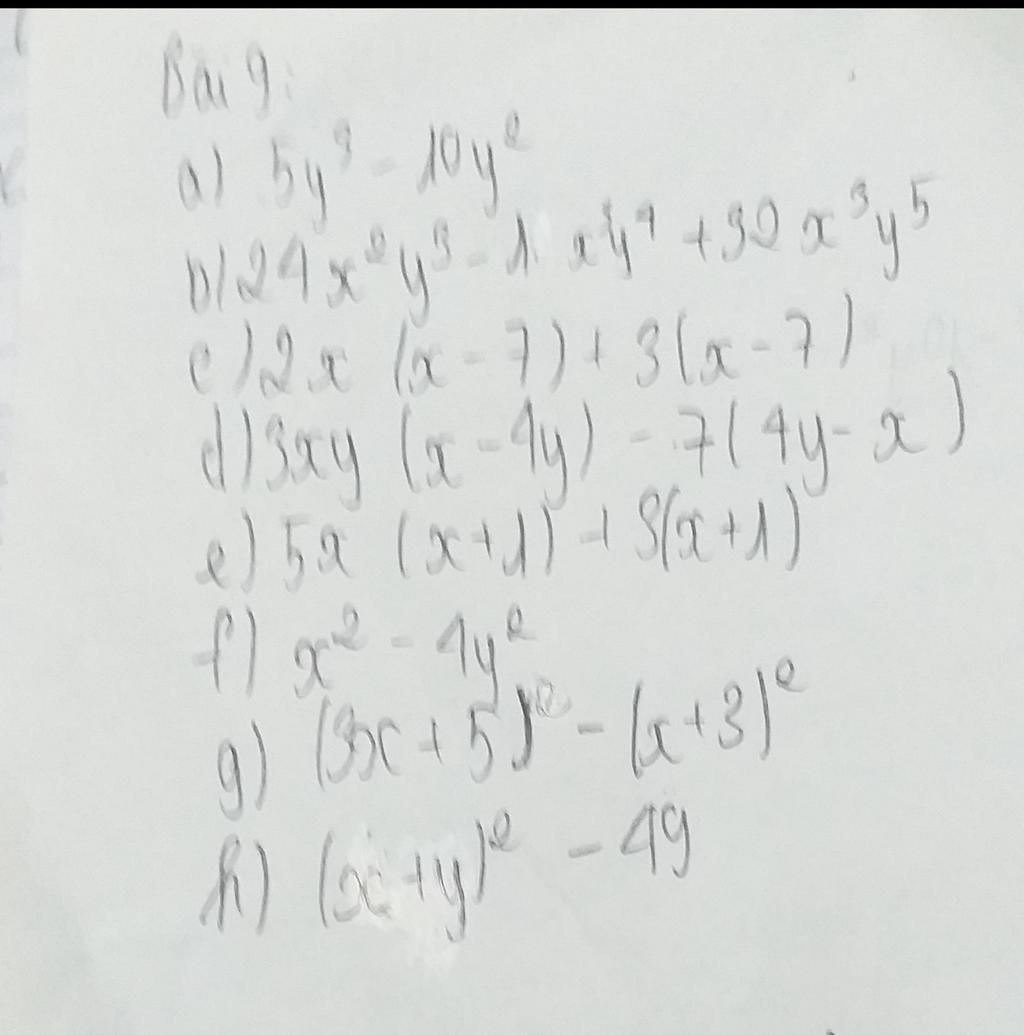 Bài 9:
a) 5y³ - 10y²
b) 24x²y³ - 1 x³y⁴ + 32x³y⁵
c) 2x (x - 7) + 3(x - 7)
d) 3xy (x - 4y) - 7(4y - x)
e) 5x (x + 1) + 3(x + 1)
f) x² - 4y²
g) (3x + 5)² - (x + 3)²
h) (x + y)² - 49